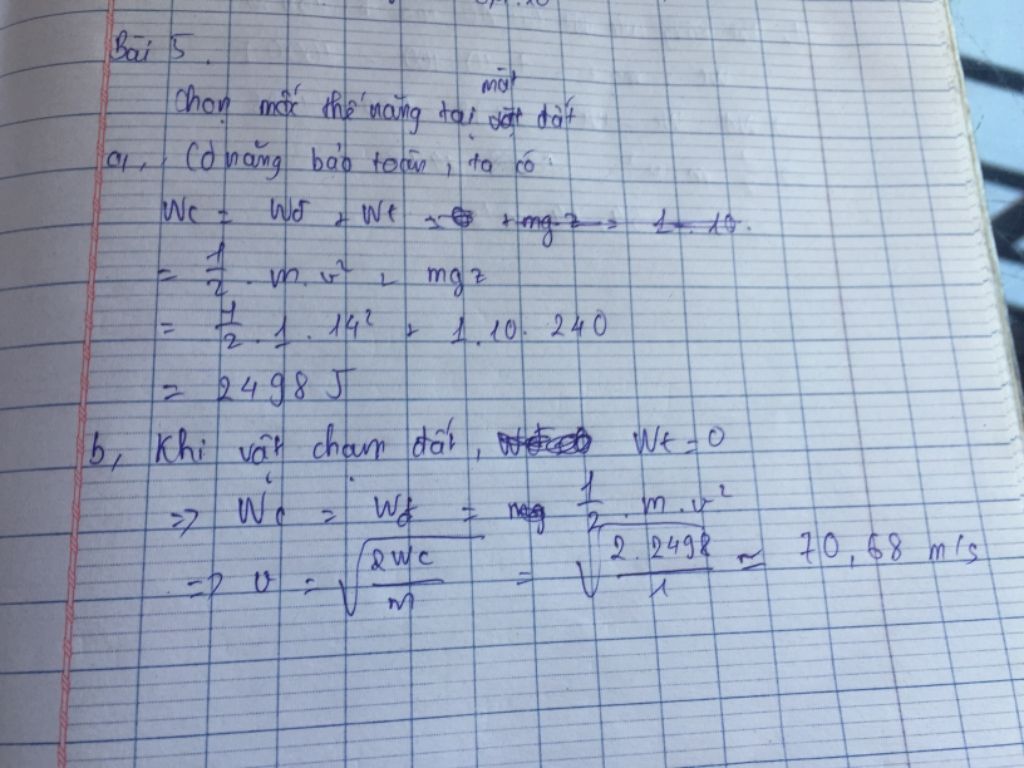 Bài 5.
Chọn mốc thế năng tại mặt đất
a, Cơ năng bảo toàn, ta có
Wc = Wđ + Wt
= 1/2 . m.v² + mgz
= 1/2 . 1 . 14² + 1.10. 240
= 2498 J
b, Khi vật chạm đất, Wt = 0
=> Wc = Wđ = 1/2 . m.v²
=> v = √(2Wc/m) = √(2.2498/1) ≈ 70,68 m/s